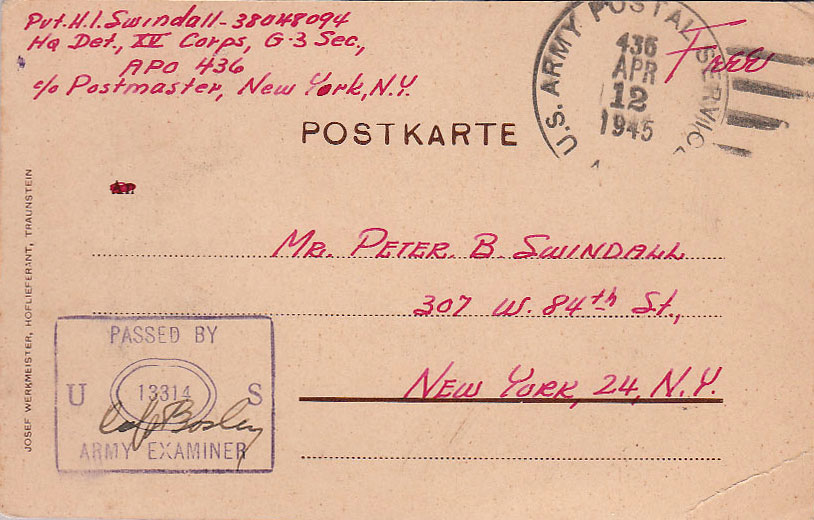 Pvt. H.I. Swindall - 38048094
Hq Det., XV Corps, G-3 Sec.,
APO 436
c/o Postmaster, New York, N.Y.
Free
U.S. ARMY POSTAL SERVICE
436
APR
12
1945
POSTKARTE
An
MR. PETER B. SWINDALL
307 W. 84th St.,
NEW YORK, 24, N.Y.
PASSED BY
U 13314 S
Bosley
ARMY EXAMINER
JOSEF WERKMEISTER, HOFLIEFERANT, TRAUNSTEIN